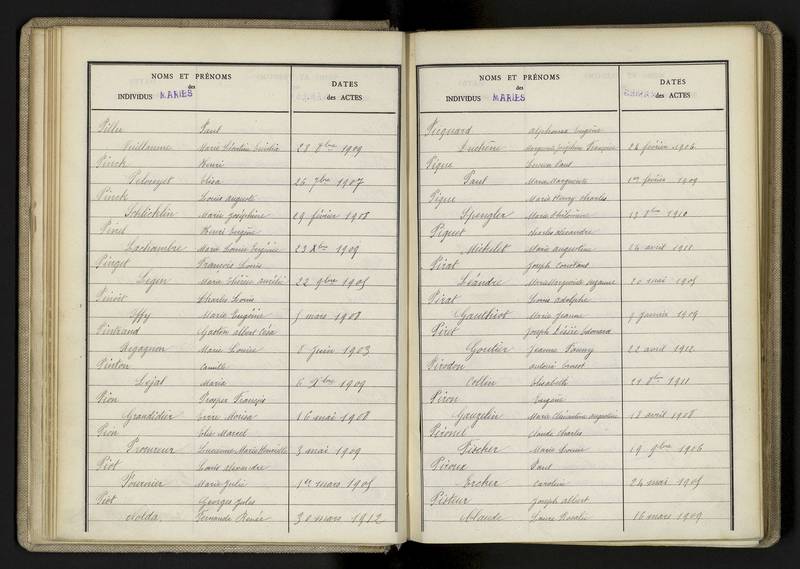 NOMS ET PRÉNOMS
des
INDIVIDUS MARIES
DATES
des ACTES
Piller Paul
Vuillaume Marie 28 7bre 1909
Pinck Henri
Pelonget Elisa 26 7bre 1907
Pinck Louis Auguste
Schlicklin Marie Joséphine 29 février 1908
Pinel Henri Eugène
Lachambre Marie Louise Eugénie 23 Xbre 1909
Pinget François Louis
Legen Marie Thérèse Amélie 22 9bre 1905
Pinoit Charles Louis
Iffy Marie Eugénie 5 mars 1908
Pintrand Gaston Albert César
Regagnon Marie Louise 8 juin 1903
Pinton Camille
Lejal Maria 6 Xbre 1909
Pion Prosper François
Grandidier 16 mai 1908
Pion Elie Marcel
Procureur Lucienne Marie Henriette 3 mai 1909
Piot Louis Alexandre
Fournier Marie Julie 1er mars 1905
Piot Georges Jules
Nolda Fernande Renée 30 mars 1912
NOMS ET PRÉNOMS
des
INDIVIDUS MARIES
DATES
des ACTES
Picquard Alphonse Eugène
Duchêne Marguerite Joséphine Françoise 24 février 1906
Pique Lucien Paul
Paul Maria Marguerite 1er février 1909
Pique Marie Henry Charles
Spengler Marie Philomène 13 8bre 1910
Piquet Charles Alexandre
Michelet Marie Augustine 24 avril 1911
Pirat Joseph Constant
Léandre Marie Marguerite Suzanne 20 mai 1905
Pirat Louis Adolphe
Gauthiot Marie Jeanne 9 janvier 1909
Piret Joseph Désiré Edouard
Goutier Jeanne Fanny 22 avril 1912
Pirodon Antoine Ernest
Collin Elisabeth 21 8bre 1911
Piron Eugène
Gauzelin Marie Clémentine Augustine 13 avril 1908
Pironel Claude Charles
Fischer Marie Louise 19 9bre 1906
Piroux Paul
Ercher Caroline 24 mai 1905
Pisteur Joseph Albert
Claude Laure Rosalie 16 mars 1909